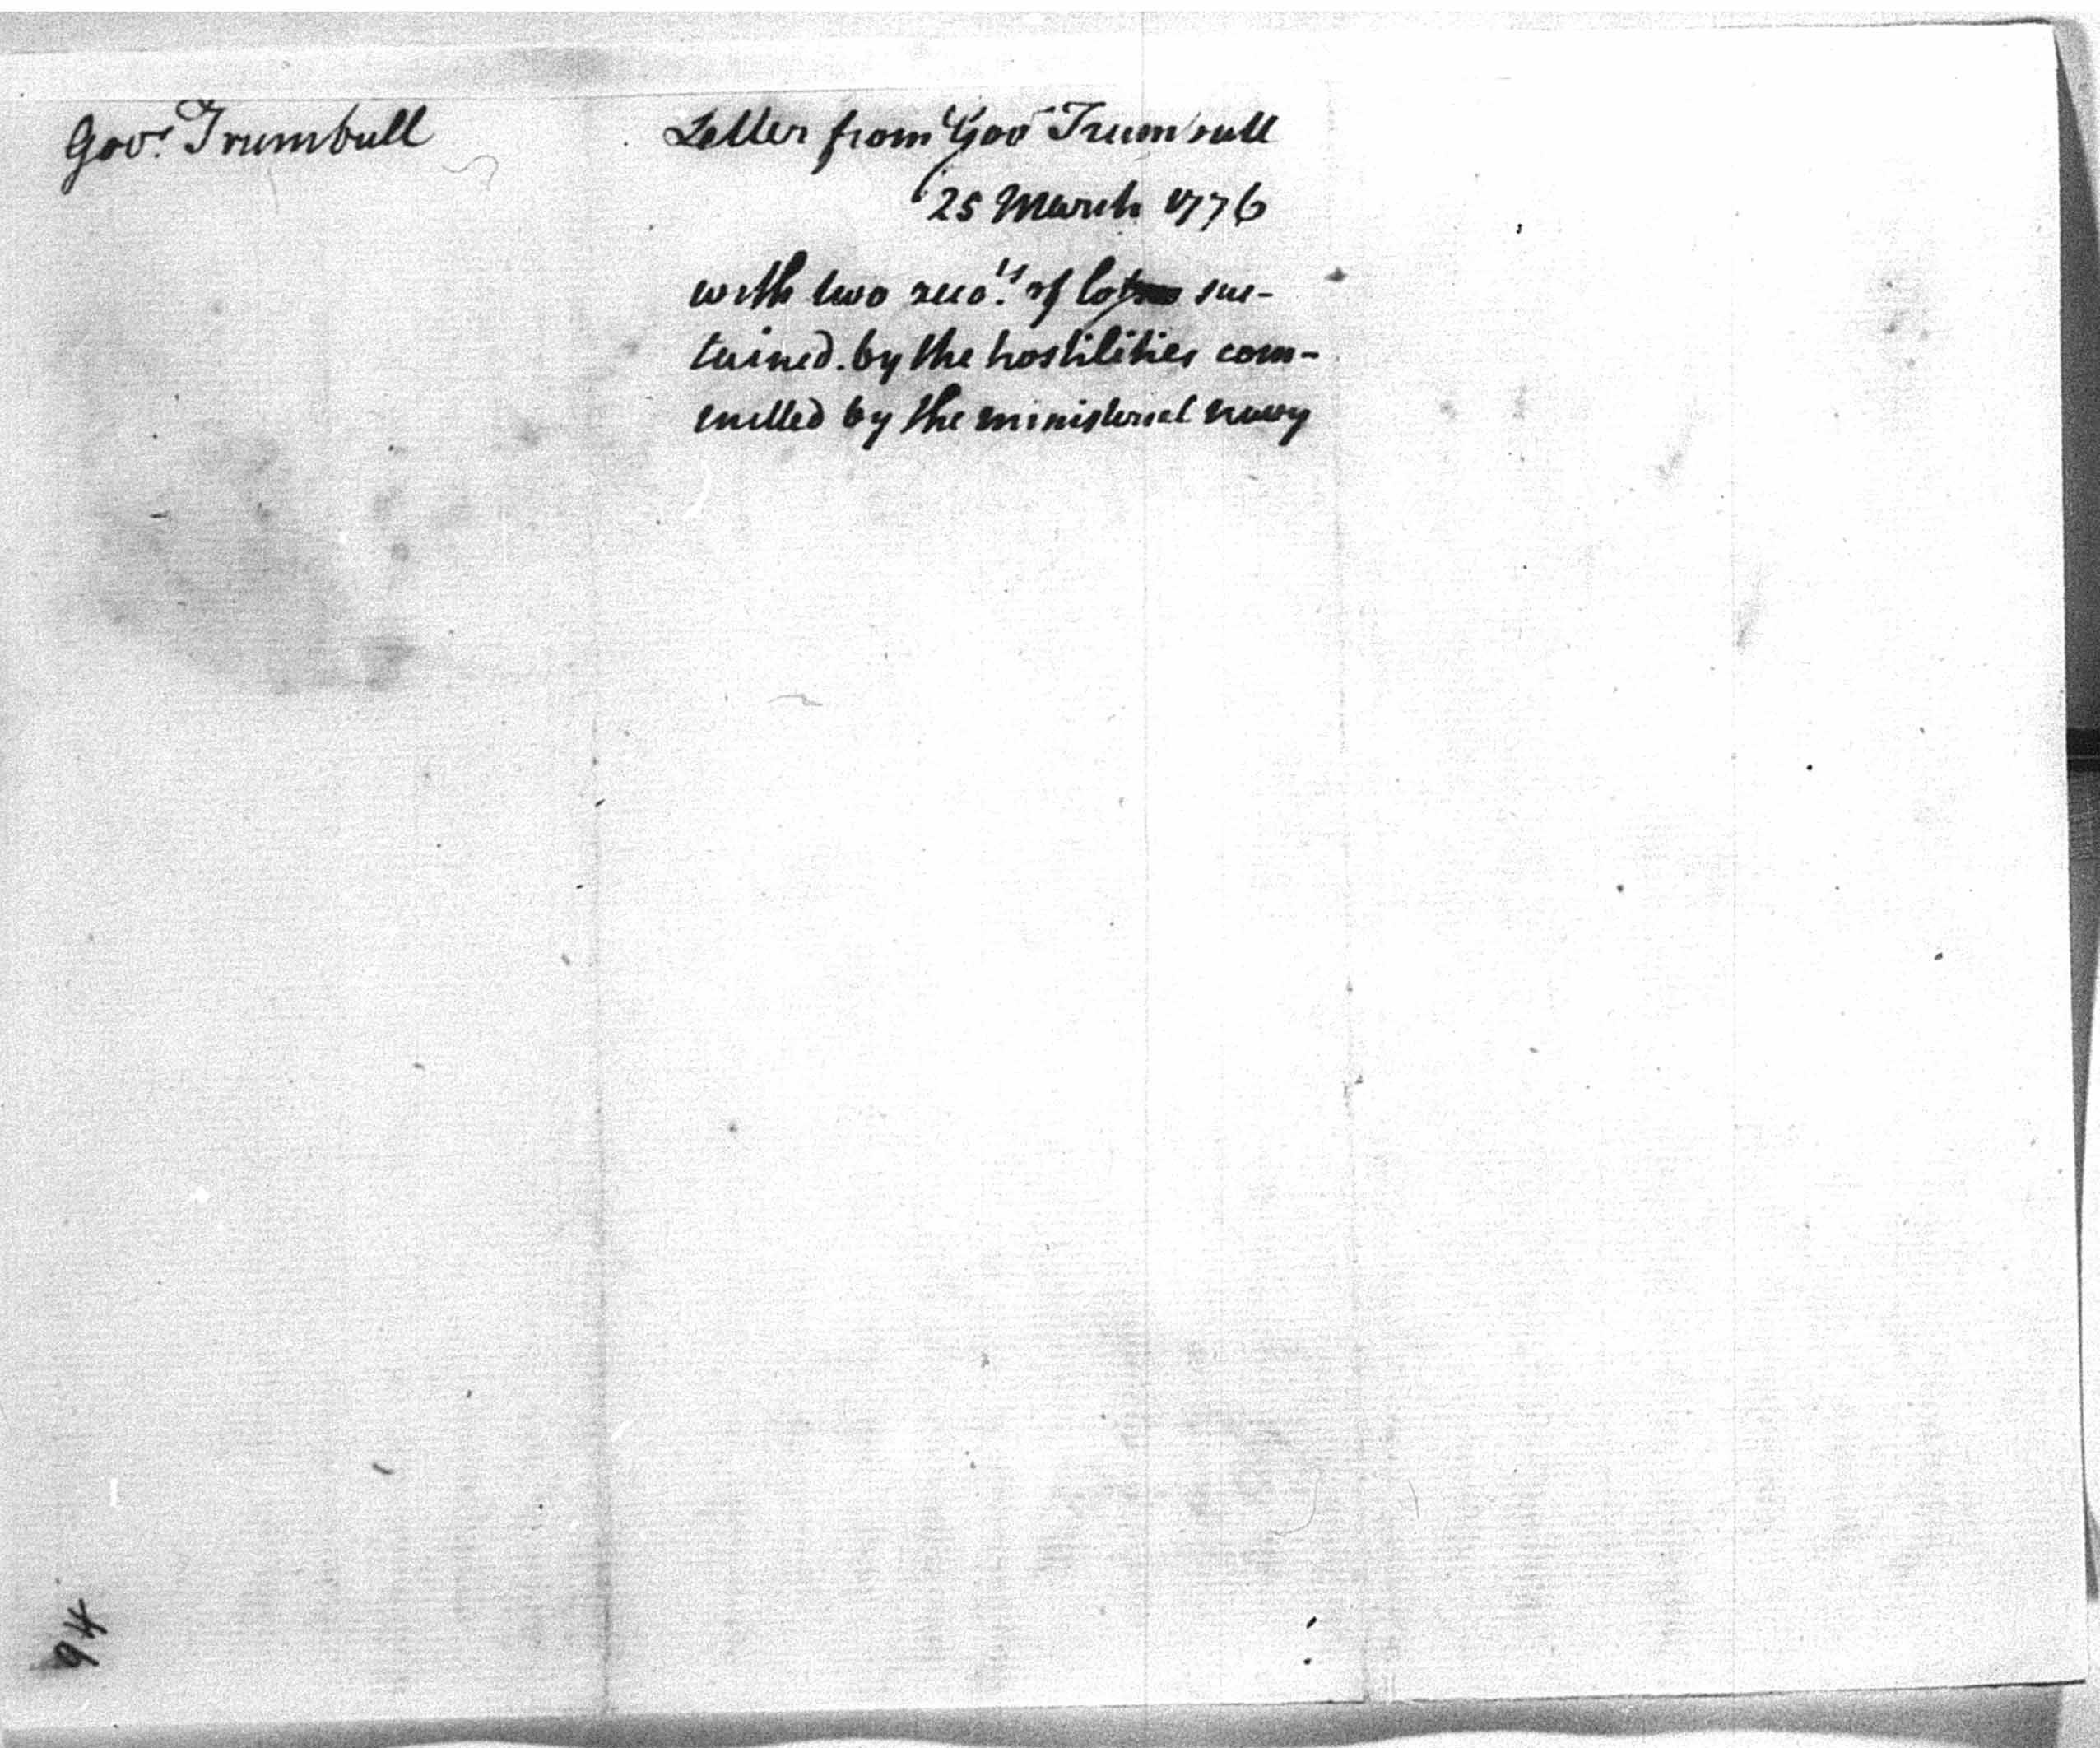 Govr. Trumbull
Letter from Gov Trumbull
25 March 1776
with two acco.ts of loss sus-
tained by the hostilities com-
mitted by the ministerial navy
94